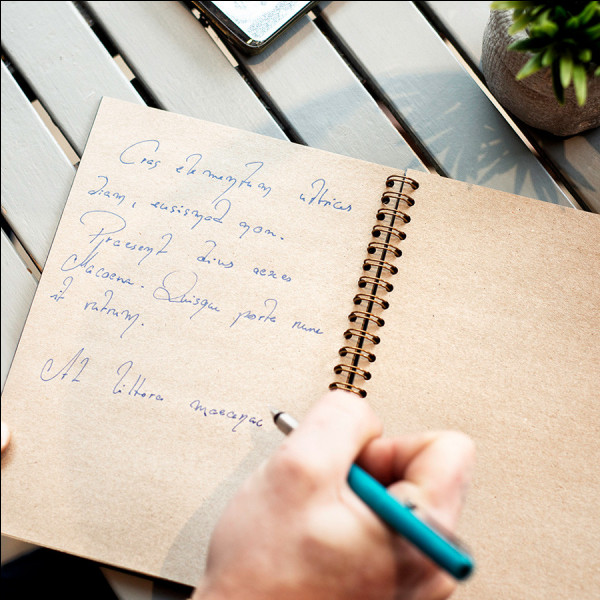 Cras elementum ultrices
diam, euismod non.
Praesent
Macoena. Quisque porta nunc
it rutrum.
At littora maecenas